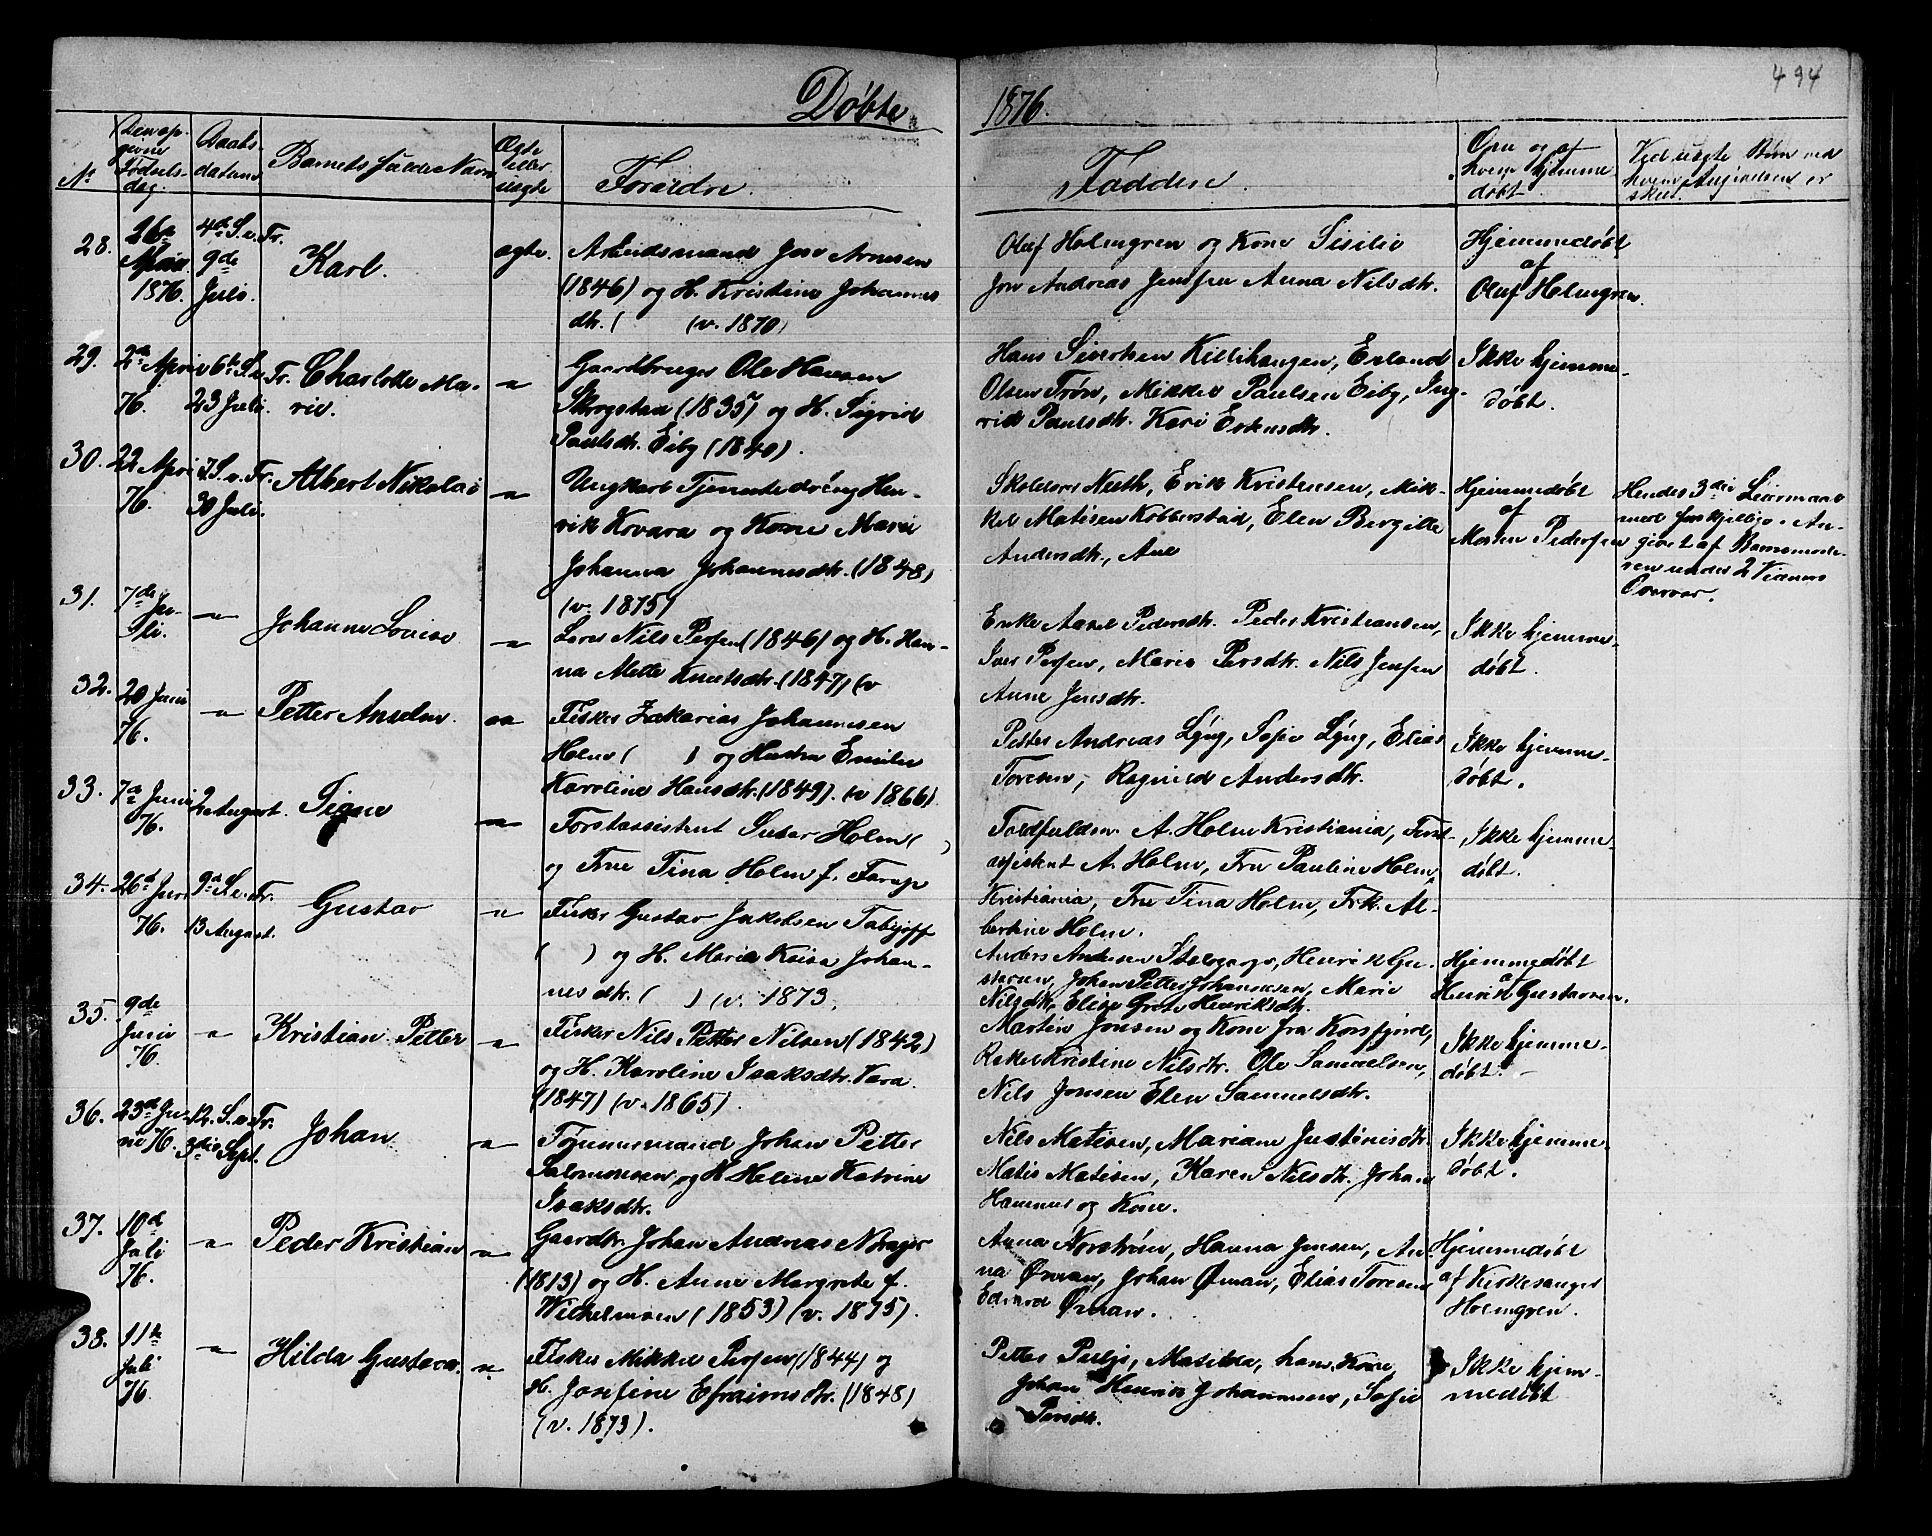 494
Døbte
1876.
No
Den opgivne Fødselsdag.
Daabsdatum
Barnets fulde Navn
Ægte eller uægte
Forældre.
Faddere.
Om og af hvem hjemmedøbt.
Ved uægte Børn ved hvem Angivelsen er skeet.
28.
26de April 1876.
4de S. e. Tr. 9de Juli.
Karl.
ægte.
Arbeidsmand Jens Arnesen
(1846) og H. Kristine Johannes
dtr. ( (v. 1870)
Olaf Holmgren og Kone Sisilie
Jon Andreas Jensen Anna Nilsdtr.
Hjemmedøbt
af
Olaf Holmgren.
29.
2den April 76.
6te S. e. Tr. 23 Juli.
Charlotte Ma-
rie.
"
Gaardbruger Ole Hansen
Skogstad (1835) og H. Sigrid
Paulsdtr. Eiby (1840).
Hans Sivertsen Killihaugen, Erland
Olsen Trøn, Mikkel Paulsen Eiby, Ing-
rid Paulsdtr. Kari Estensdtr.
Ikke hjemme-
døbt.
30.
22 April 76.
7. S. e. Tr. 30 Juli.
Albert Nikolai
"
Ungkarl Tjenestedreng Hen-
rik Kovara og Kone Marie
Johanna Johannesdtr. (1848)
(v. 1875)
Skolelærer Neeth, Erik Kristensen, Mik-
kel Matisen Kobberstad, Elen Bergitte
Andersdtr., Ane
Hjemmedøbt
af
Morten Pedersen
Hendes 3die Leiermaal
med forskjellige. An-
givet af Barnemode-
ren under 2 Vidners
Overvær.
31.
7de Ju-
li.
"
Johanne Lovise
"
Lars Nils Persen (1846) og H. Han-
na Mette Knutsdtr. (1847) (v
Enke Aaret Pedersdtr. Peder Kristiansen,
Iver Persen, Maria Persdtr. Nils Jensen
Anne Jensdtr.
Ikke hjemme-
døbt.
32.
20 Juni
76.
"
Petter Anselm.
"
Fisker Zakarias Johannesen
Holm ( ) og Hustru Emilie
Karoline Hansdtr. (1849). (v 1866)
Petter Andreas Lyng, Sofie Lyng, Elias
Toresen, Ragnild Andersdtr.
Ikke hjemme-
døbt.
33.
7de Juni
76.
2 August.
Signe
"
Forstassistent Holm ( )
og Frue Tina Holm f. Farup
Toldfuldm. A. Holm Kristiania, Forst-
assistent A. Holm, Fru Pauline Holm,
Kristiania, Fru Tina Holm, Frk. Al-
bertine Holm.
Ikke hjemme-
døbt.
34.
26de Juni
76.
9de S. e. Tr.
13 August.
Gustav
"
Fisker Gustav Jakobsen Tabjoff
( ) og H. Maria Kaisa Johan-
nesdtr. ( ) (v. 1873.
Anders Andersen Henrik Gu-
stavsen, Johan Petter Johannesen, Marie
Nilsdtr. Elise Grete Henriksdtr.
Hjemmedøbt
af
Henrik Gustavsen.
35.
9de
Juni
76.
"
Kristian Petter
"
Fisker Nils Petter Nilsen (1842)
og H. Karoline Isaksdtr. Vara
(1847) (v. 1865).
Martin Jonsen og Kone fra Korsfjord,
Rakel Kristine Nilsdtr. Ole Samuelsen,
Nils Jonsen Elen Samuelsdtr.
Ikke hjemme-
døbt.
36.
23de Ju-
ni 76.
12. S. e. Tr.
3die Sept.
Johan
"
Tømmermand Johan Petter
Salomonsen, og H. Helene Katrine
Isaksdtr.
Nils Matisen, Mariane Justinisdtr.
Matis Matisen, Karen Nilsdtr. Johan
Hammer og Kone.
Ikke hjemme-
døbt.
37.
10de
Juli
76.
"
Peder Kristian
"
Gaardbr. Johan Andreas
(1813) og H. Anne Margrete f.
Wilhelmsen (1853) (v. 1875).
Anna Norstrøm, Hanna Jensen, An-
na Øman, Johan Øman, Elias Toresen
Edvard Øman.
Hjemmedøbt
af Kirkesanger
Holmgren.
38.
11te
Juli
76.
"
Hilda Gustava.
"
Fisker Mikkel Persen (1844) og
H. Josefine Efraimsdtr. (1848)
(v. 1873).
Petter Matilda, hans Kone,
Johan Henrik Johannesen, Sofie
Persdtr.
Ikke hjem-
medøbt